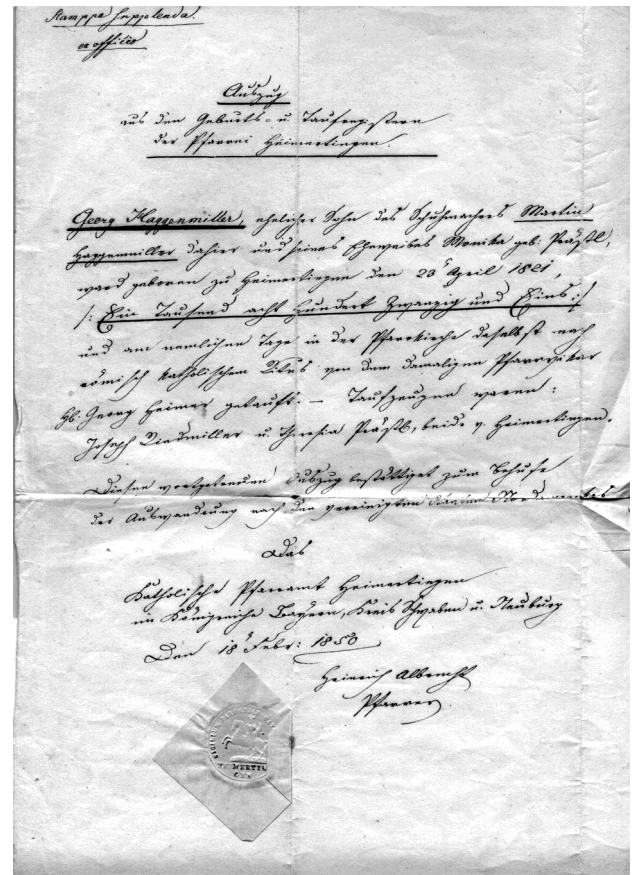 Stamppa supplenda.
ex officio
Auszug
aus den Geburts- u. Taufregistern
der Pfarrei Heimertingen.
Georg Haggenmiller, ehelicher Sohn des Schuhmachers Martin
Haggenmiller dahier und seines Eheweibes Monika geb: Präßtl,
ward geboren zu Heimertingen den 23t April 1821,
/: Ein Tausend acht Hundert Zwanzig und Eins :/
und am nemlichen Tage in der Pfarrkirche daselbst nach
römisch katholischem Ritus von dem damaligen Pfarrvikar
Georg Heimer getauft. — Taufzeugen waren:
Joseph Riedmiller u. Theresia Präßtl, beide v. Heimertingen.
Diesen vorstehenden Auszug bestättiget zum Behufe
der Auswanderung nach den vereinigten Staaten Nordamerikas
Das
Katholische Pfarramt Heimertingen
im Königreiche Bayern, Kreis Schwaben u. Neuburg
Den 18t Febr: 1850
Heinrich Albrecht
Pfarrer.